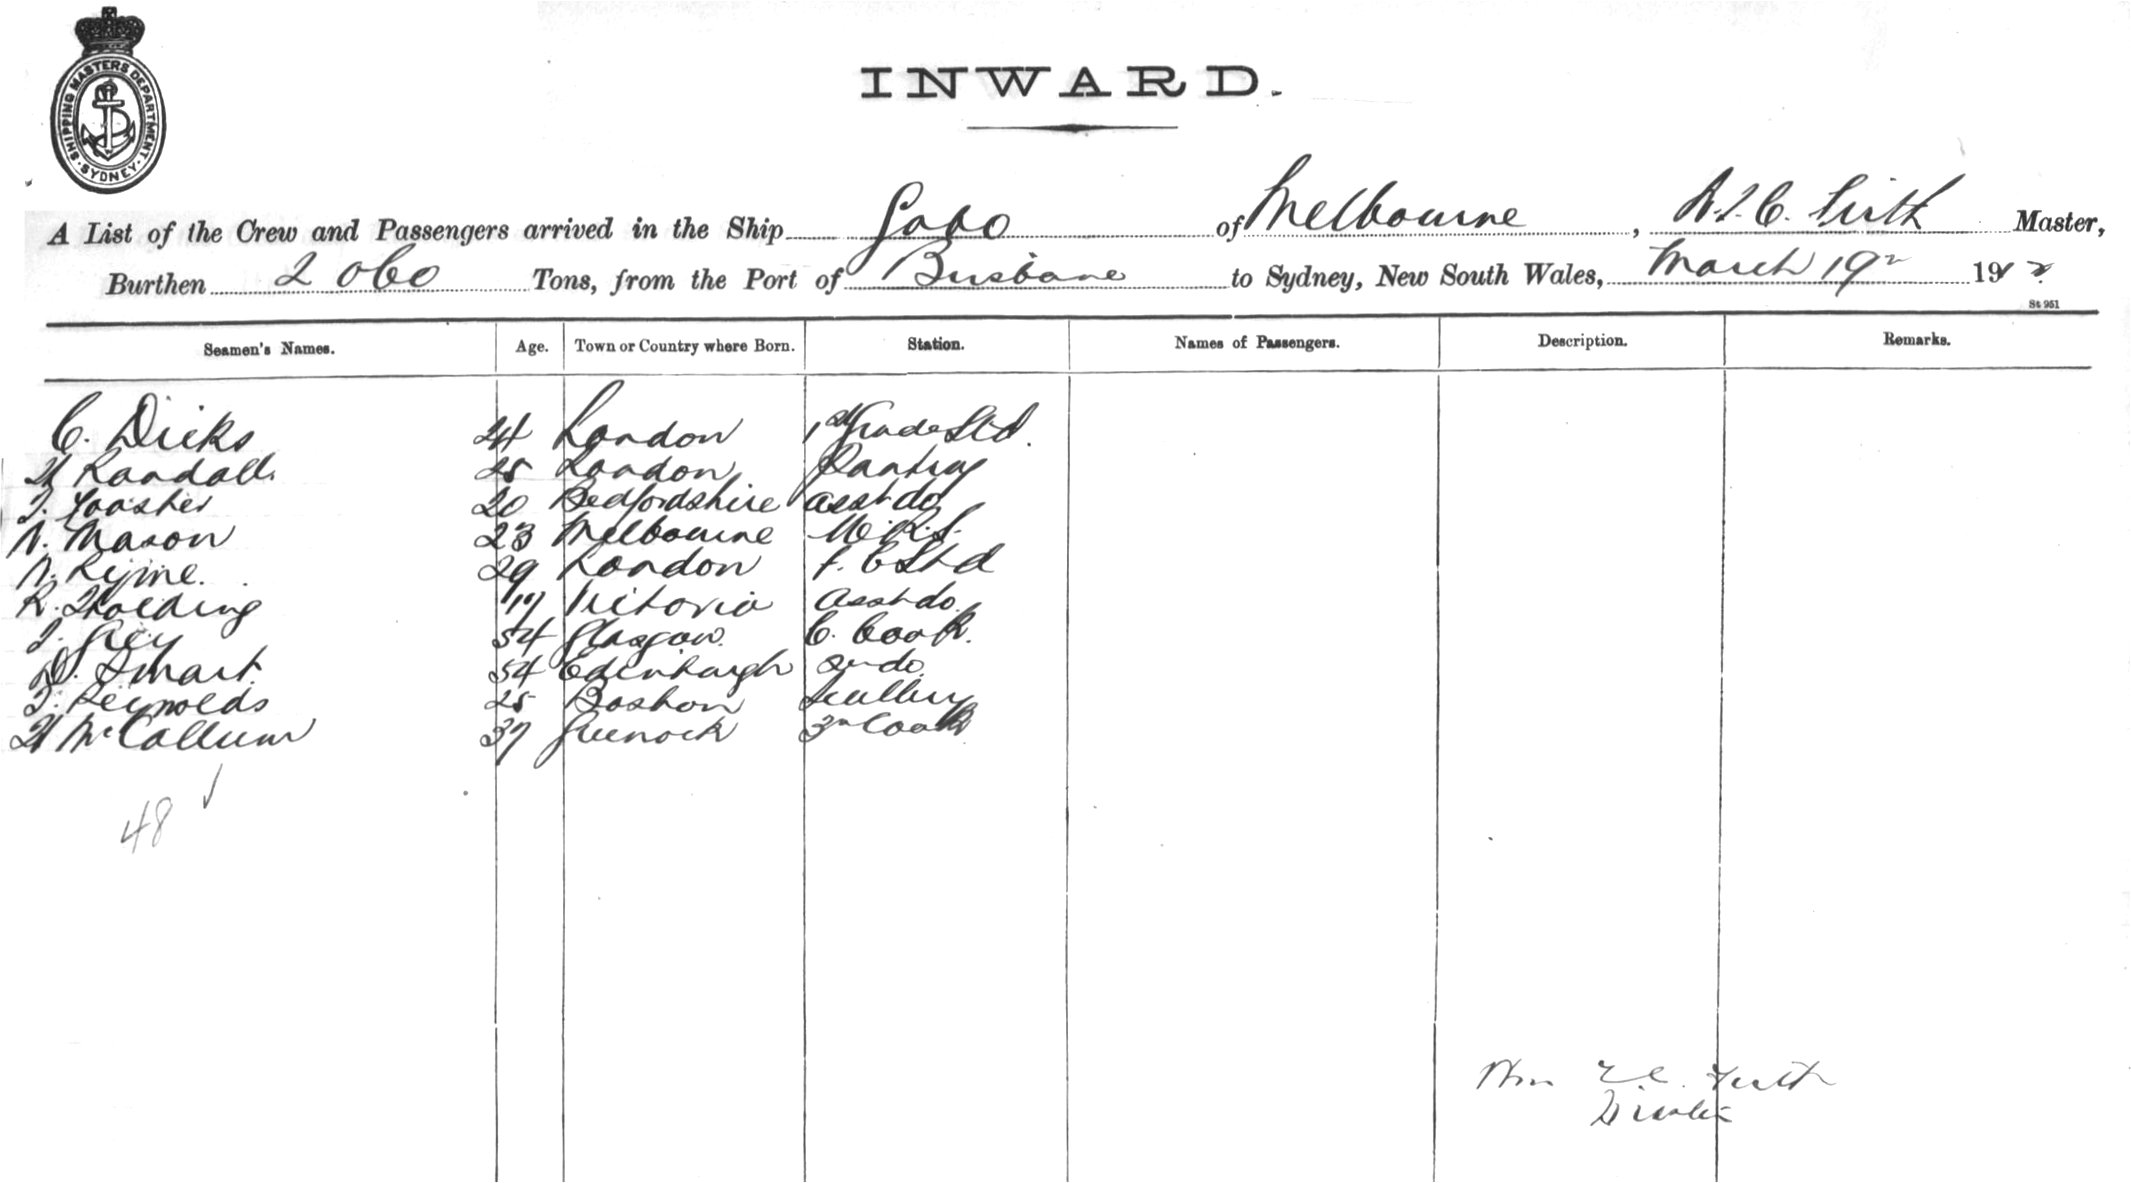 SHIPPING MASTERS DEPARTMENT · SYDNEY ·
INWARD.
A List of the Crew and Passengers arrived in the Ship Gabo of Melbourne, Firth Master,
Burthen 2060 Tons, from the Port of Brisbane to Sydney, New South Wales, March 19 191
St 951
Seamen's Names. Age. Town or Country where Born. Station. Names of Passengers. Description. Remarks.
C. Dicks 24 London 1st Grade Std.
H Randall 25 London Pantry
20 Bedfordshire asst do
N. Mason 23 Melbourne
29 London F. C Std
R. 17 Victoria asst do.
J. Grey 54 Glasgow. C. Cook.
D. Smart. 54 Edinburgh 2nd do.
J. Reynolds 25 Boston Scullery
H McCallum 37 Greenock 3rd Cook
48
Wm Firth